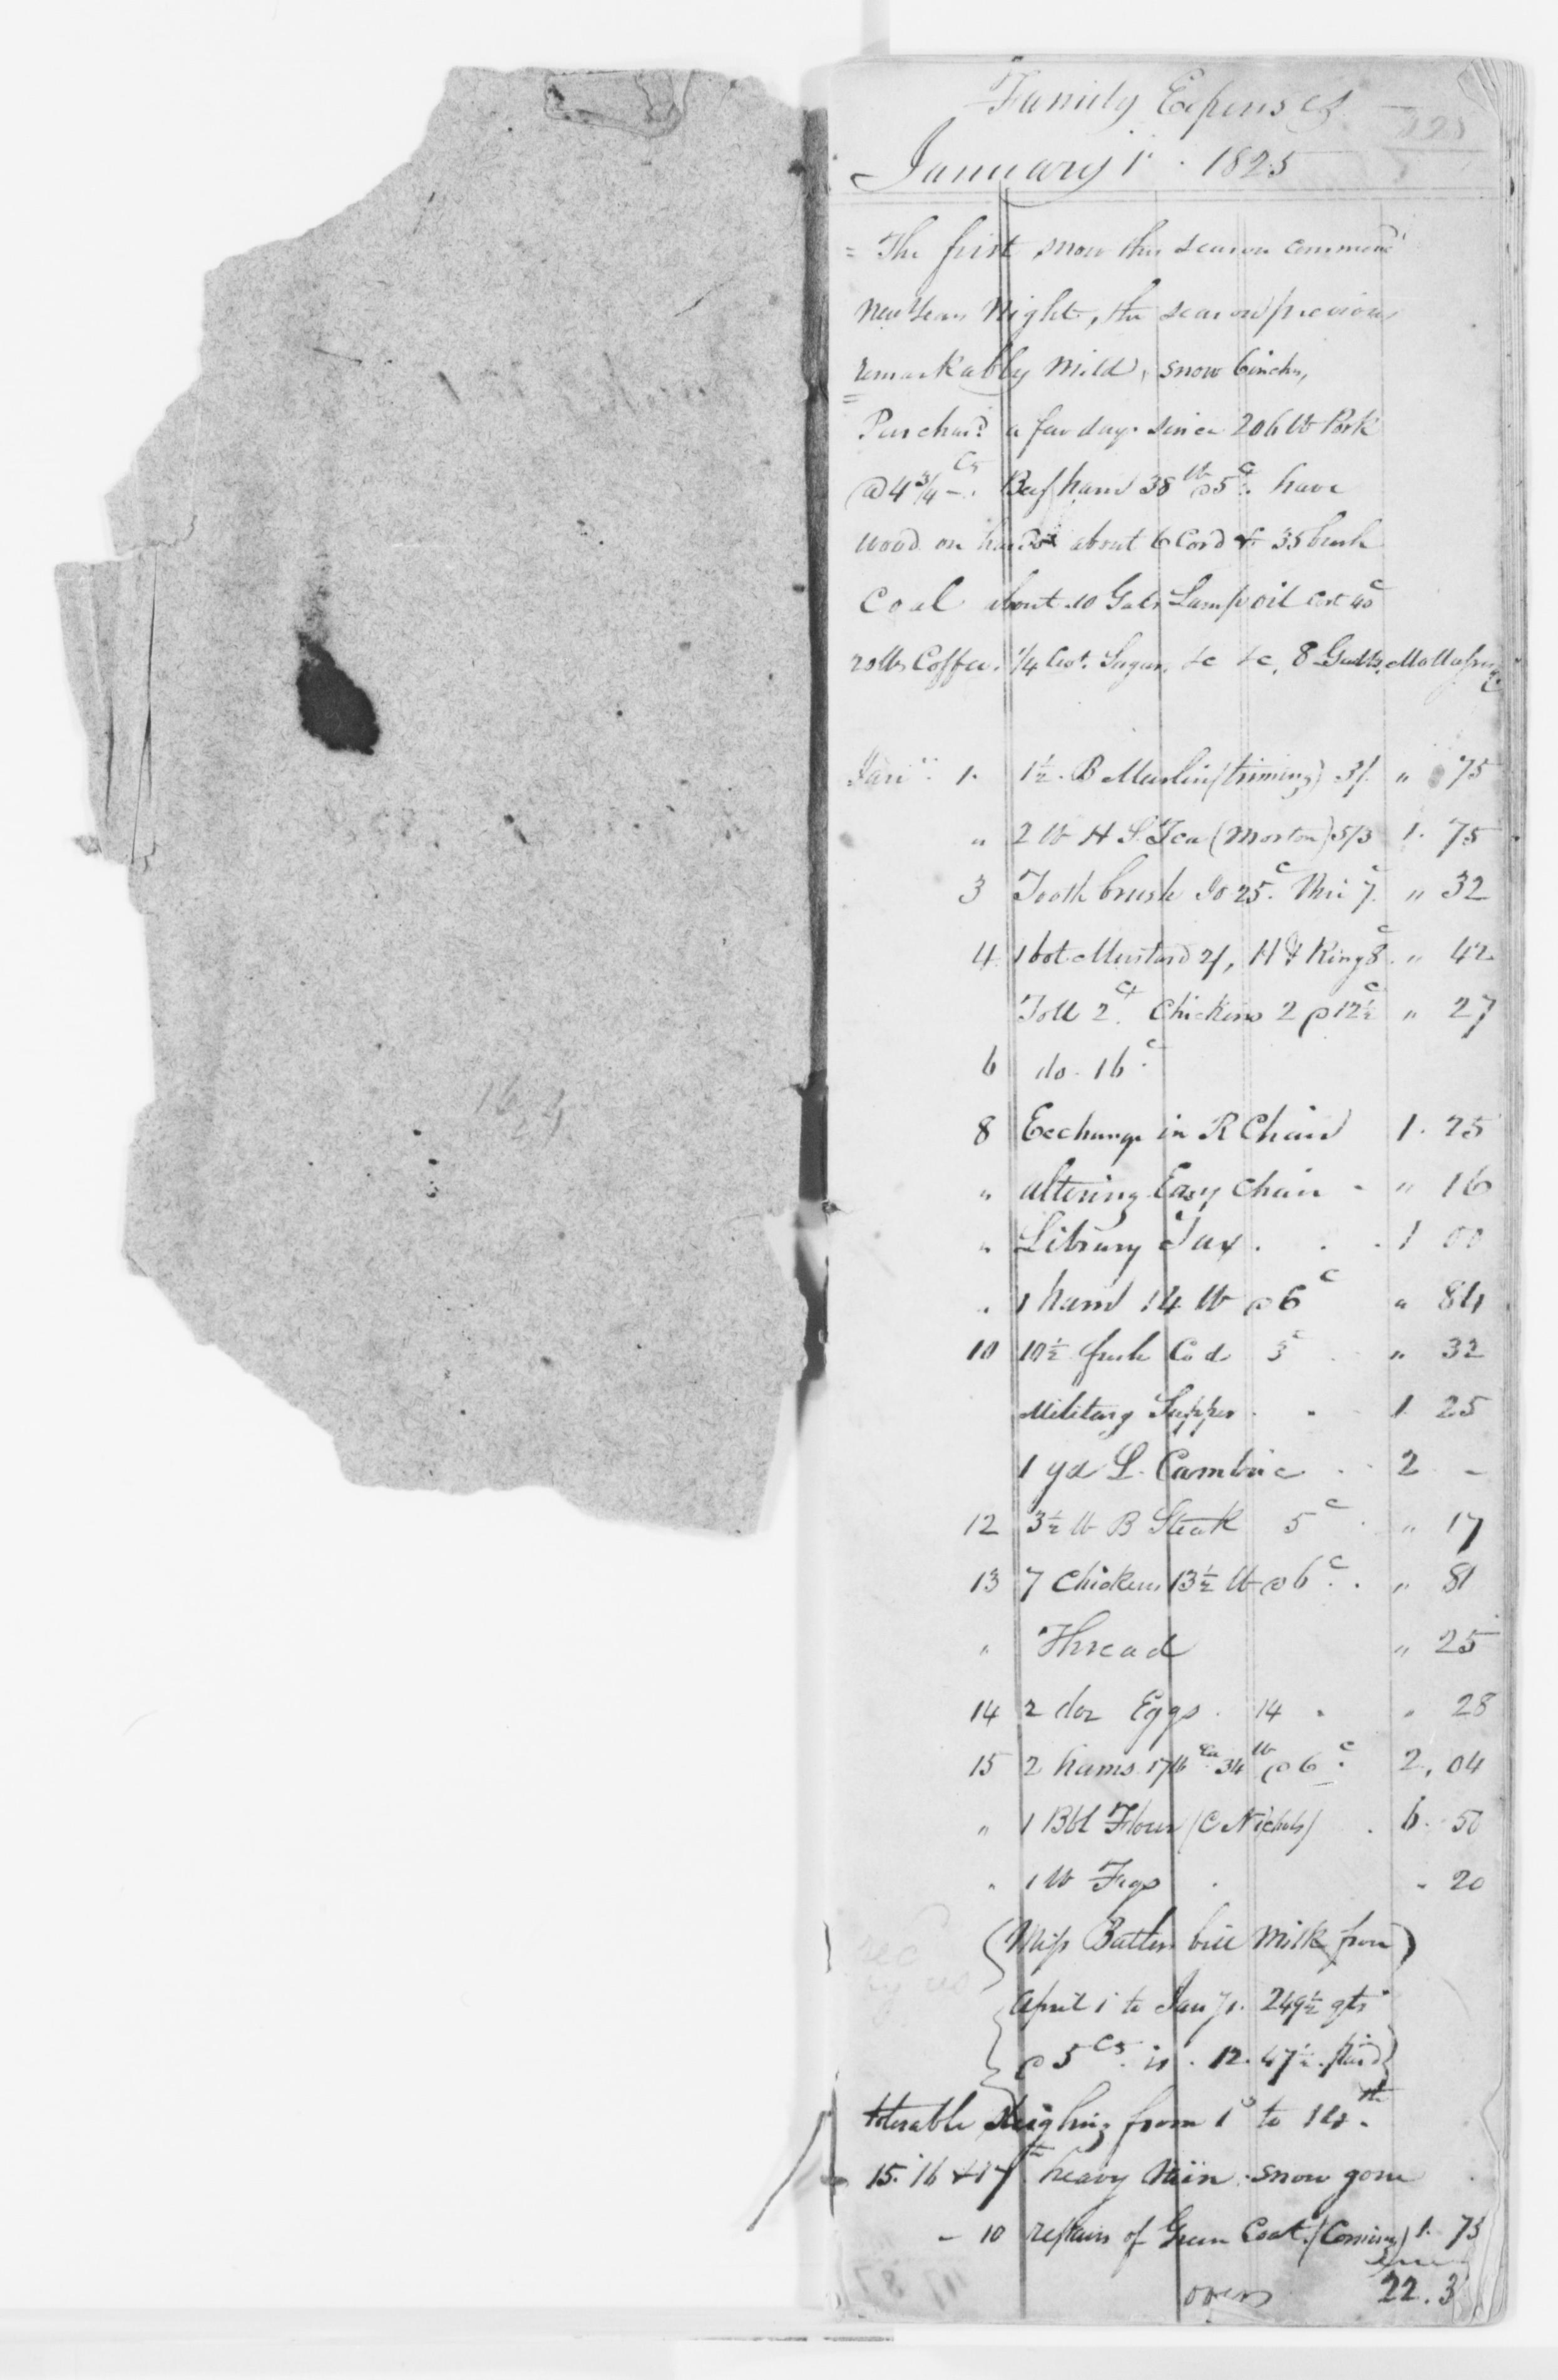 Family Expenses
January 1st 1825
= The first snow this season commencd
New Years Night, the season previous
remarkably Mild, snow 6 inchs,
Purchasd a few days since 206 lb Pork
@ 4 3/4 Cts. Beef hand 38 lb @ 5 Cs. have
wood on hand about 6 Cord & 35 bush
Coal about 10 Gals Lamp oil Cost 40 c
20 lbs Coffee, 1/4 Cwt. Sugar, &c &c, 8 Galls. Mollasses
Jany. 1. 1½. B Muslin (triming) 3/. " 75
" 2 lb H S. Tea (Morton) 5/3 1. 75
3 Tooth brush 25 c. 7 c. " 32
4 1 bot Mustard 2/, 8 c. " 42
Toll 2 Cs. Chickens 2 @ 12½ c " 27
6 do. 16 c.
8 Exchange in R Chair 1. 25
" altering Easy Chair - " 16
" Library Tax . . . 1 00
" 1 hand 14 lb @ 6 c " 84
10 10½ fresh Cod 3 c . " 32
Military Supper . . 1. 25
1 yd L. Cambric . . 2 -
12 3½ lb B Steak 5 c . " 17
13 7 Chickens 13½ lb @ 6 c. . " 81
" Thread " 25
14 2 doz Eggs . 14 . " 28
15 2 hams 17 lb ea 34 lb @ 6 c. 2, 04
" 1 Bbl Flour (C Nichols) . 6. 50
" 1 lb Figs . " 20
(Miss Butlers bill Milk from)
April 1 to Jany 1. 249½ qts
@ 5 Cs. is . 12. 47½. paid
tolerable sleighing from 1st to 14th.
15. 16 & 17th heavy rain. snow gone
- 10 repairs of Green Coat. (Corning) 1. 75
over 22.3